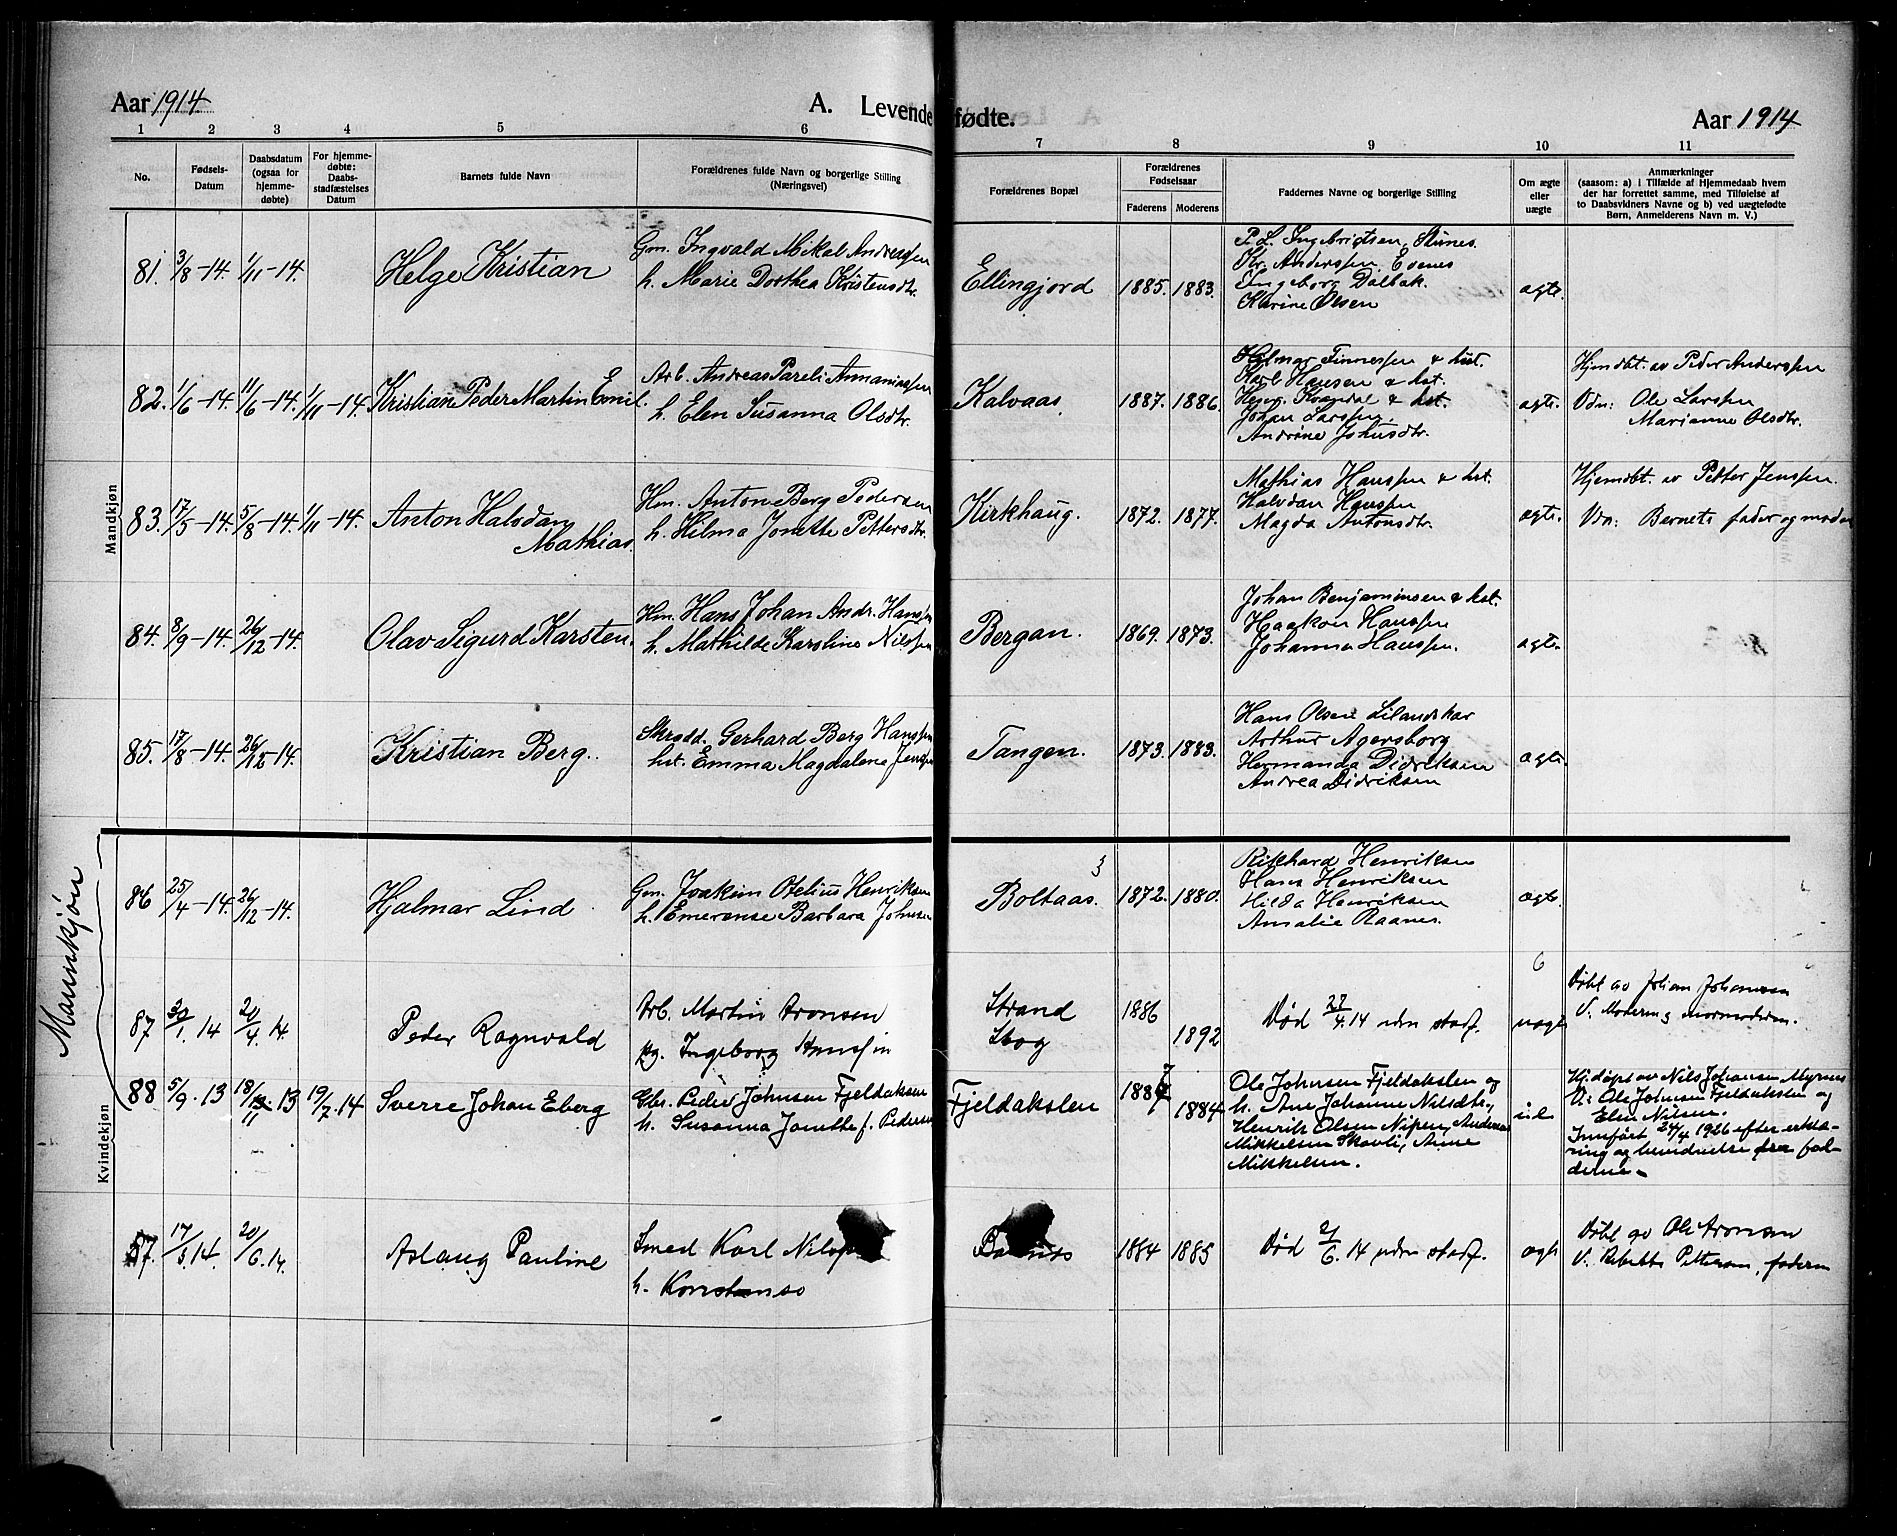 Aar 1914.
A. Levendefødte.
Aar 1914
1 2 3 4 5 6 7 8 9 10 11
No.
Fødsels-
Datum
Daabsdatum
(ogsaa for
hjemme-
døbte)
For hjemme-
døbte:
Daabs-
stadfæstelses
Datum
Barnets fulde Navn
Forældrenes fulde Navn og borgerlige Stilling
(Næringsvei)
Forældrenes Bopæl
Forældrenes
Fødselsaar
Faderens Moderens
Faddernes Navne og borgerlige Stilling
Om ægte
eller
uægte
Anmærkninger
(saasom: a) i Tilfælde af Hjemmedaab hvem
der har forrettet samme, med Tilføielse af
to Daabsvidners Navne og b) ved uægtefødte
Børn, Anmelderens Navn m. V.)
Mandkjøn
81. 3/8-14. 1/11-14.
Helge Kristian
Gm. Ingvald Mikal Andreassen
h. Marie Dorthea Kristensdtr.
Ellingjord
1885. 1883.
P. L. Ingebrigtsen, Stunes.
Kr. Anderssen, Evenes
Ingeborg Dalbak.
Karine Olsen
ægte.
82. 1/6-14. 11/6-14. 1/11-14.
Kristian Peder Martin Emil.
Arb. Andreas Pareli Annaniassen
h. Elen Susanna Olsdtr.
Kalvaas
1887. 1886.
Hjalmar Finnessen & hst.
Karl Hansen & hst.
& hst.
Johan Larssen,
Andrine Johnsdtr.
ægte.
Hjemdbt. av Peder Anderssen
Vdn: Ole Larssen
Marianne Olsdtr.
83. 17/5-14. 5/8-14. 1/11-14.
Anton Halvdan
Mathias.
Hm. Anton Berg Pedersen
h. Hilma Jonette Pettersdtr.
Kirkhaug.
1872. 1877.
Mathias Hanssen & hst.
Halvdan Hanssen
Magda Antonsdtr.
ægte.
Hjemdbt. av Petter Jenssen.
Vdn: Barnets fader og moder
84. 8/9-14. 26/12-14.
Olav Sigurd Karsten.
Hm. Hans Johan Andr. Hanssen
h. Mathilde Karoline Nilssen
Bergan.
1869. 1873.
Johan Benjaminsen & hst.
Haakon Hanssen
Johanna Hanssen.
ægte.
85. 17/8-14. 26/12-14.
Kristian Berg.
Skrædd. Gerhard Berg Hanssen
hst. Emma Magdalena Jenssen
Tangen.
1873. 1883.
Hans Olsen Lilandskar
Arthur Agersborg
Hermanda Didriksen
Andrea Didriksen
ægte.
Mannskjøn
86 25/4-14. 26/12-14.
Hjalmar Lind.
Gm. Joakim Otelius Henriksen
h. Emerense Barbara Johnsen
3
Boltaas.
1872. 1880.
Rikhard Henriksen
Hans Henriksen
Hilda Henriksen
Amalie Raanes.
ægte.
87 30/1. 14 20/4. 14.
Peder Ragnvald
Arb. Martin Aronsen
pg. Ingeborg Hanssen
Strand
Skog
1886
1892
Død 22/4.14 uden stadf.
6
uægte
Døbt av Johan Johansen
V: Moderen og mormoderen.
Kvindekjøn
88 5/9. 13 18/11. 13 19/7. 14
Sverre Johan Eberg
Gbr. Peder Johnsen Fjeldakslen
h. Susanna Jonette f. Pedersen
Fjeldakslen
1887
1884
Ole Johnsen Fjeldakslen og
h. Ane Johanne Nilsdtr.,
Henrik Olsen Nipen, Anders
Mikkelsen Skavli, Anne
Mikkelsen.
Hj.døpt av Nils Johansen Myrnes
V.: Ole Johnsen Fjeldakslen og
Elen Nilsen.
Innført 24/4 1926 efter erklæ-
ring og bevidnelse fra fad-
derne.
57. 17/5.14. 20/6.14.
Aslaug Pauline
Smed Karl Nilssen
h. Konstanse
1884 1885
Død 21/6.14 uden stadf.
ægte
Døbt av Ole Aronsen
V: Petterson, faderen